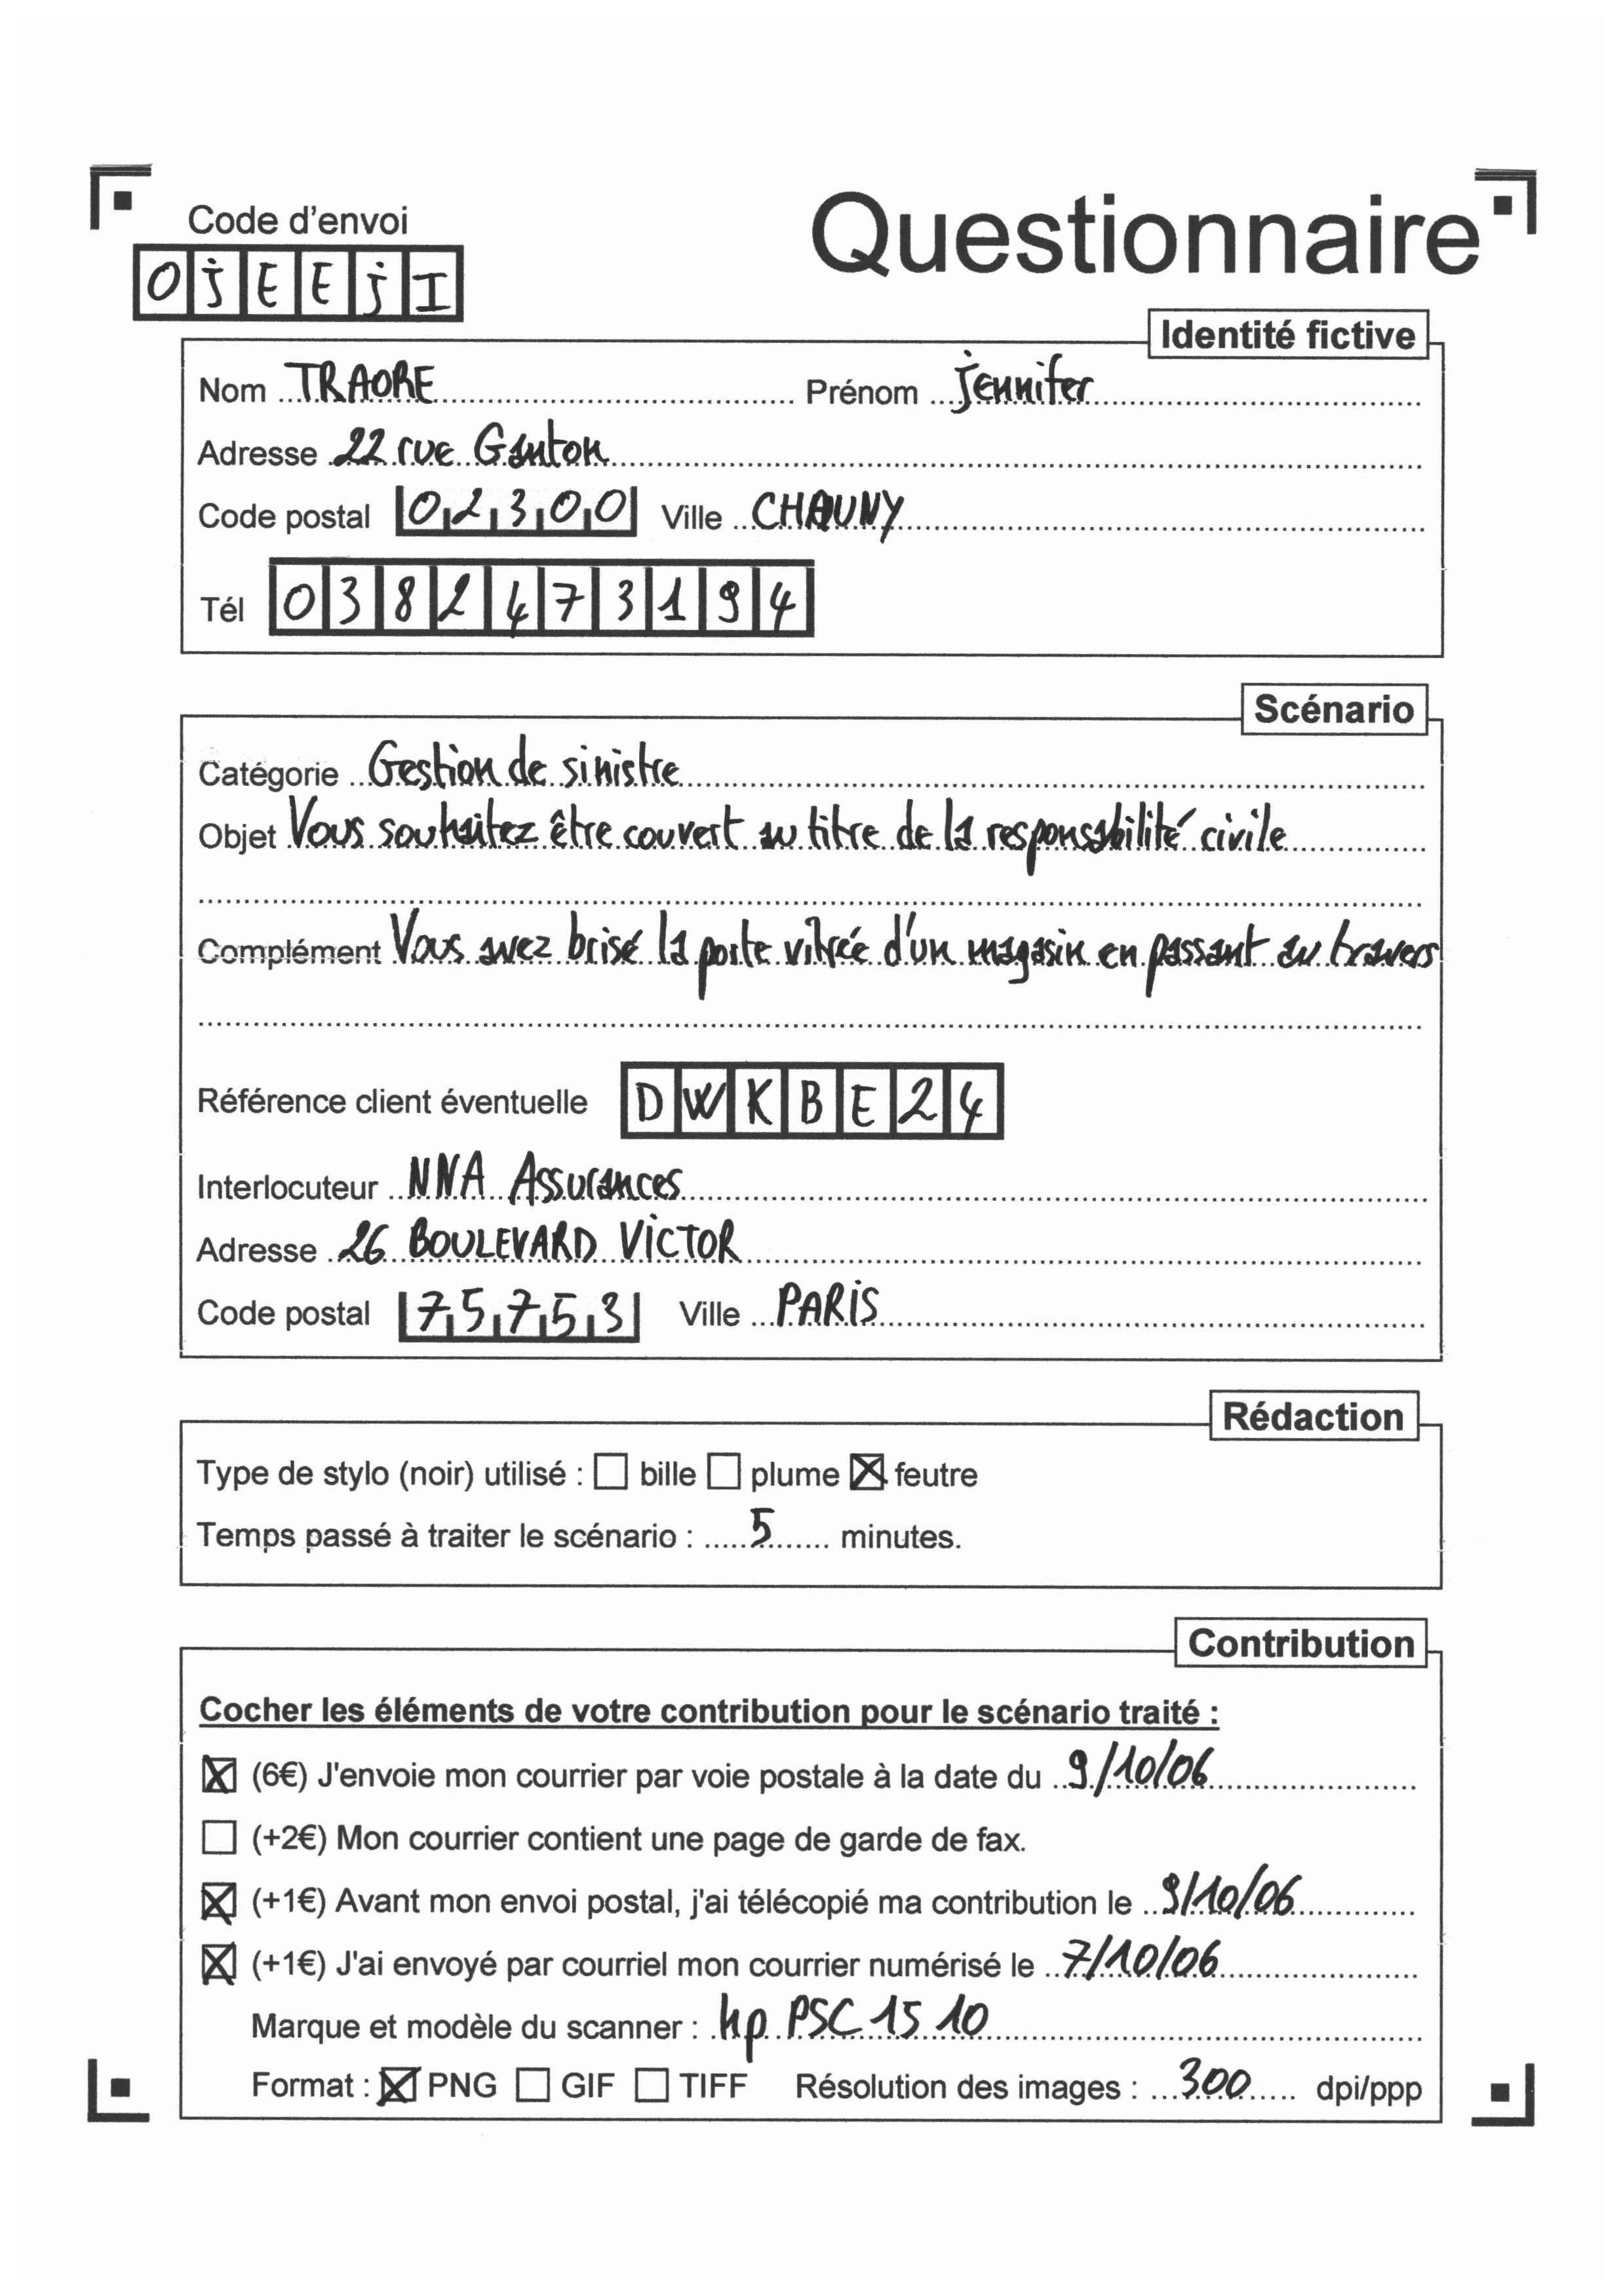 Code d'envoi
Questionnaire
OjEEjI
Identité fictive
Nom TRAORE Prénom jennifer
Adresse 22 rue Ganton
Code postal 02300 Ville CHAUNY
Tél 0382473194
Scénario
Catégorie Gestion de sinistre
Objet Vous souhaitez être couvert au titre de la responsabilité civile
Complément Vous avez brisé la porte vitrée d'un magasin en passant au travers
Référence client éventuelle DWKBE24
Interlocuteur NNA Assurances
Adresse 26 BOULEVARD VICTOR
Code postal 75753 Ville PARIS
Rédaction
Type de stylo (noir) utilisé : bille plume feutre
Temps passé à traiter le scénario : 5 minutes.
Contribution
Cocher les éléments de votre contribution pour le scénario traité :
(6€) J'envoie mon courrier par voie postale à la date du 9/10/06
(+2€) Mon courrier contient une page de garde de fax.
(+1€) Avant mon envoi postal, j'ai télécopié ma contribution le 9/10/06
(+1€) J'ai envoyé par courriel mon courrier numérisé le 7/10/06
Marque et modèle du scanner : hp PSC 1510
Format : PNG GIF TIFF Résolution des images : 300 dpi/ppp